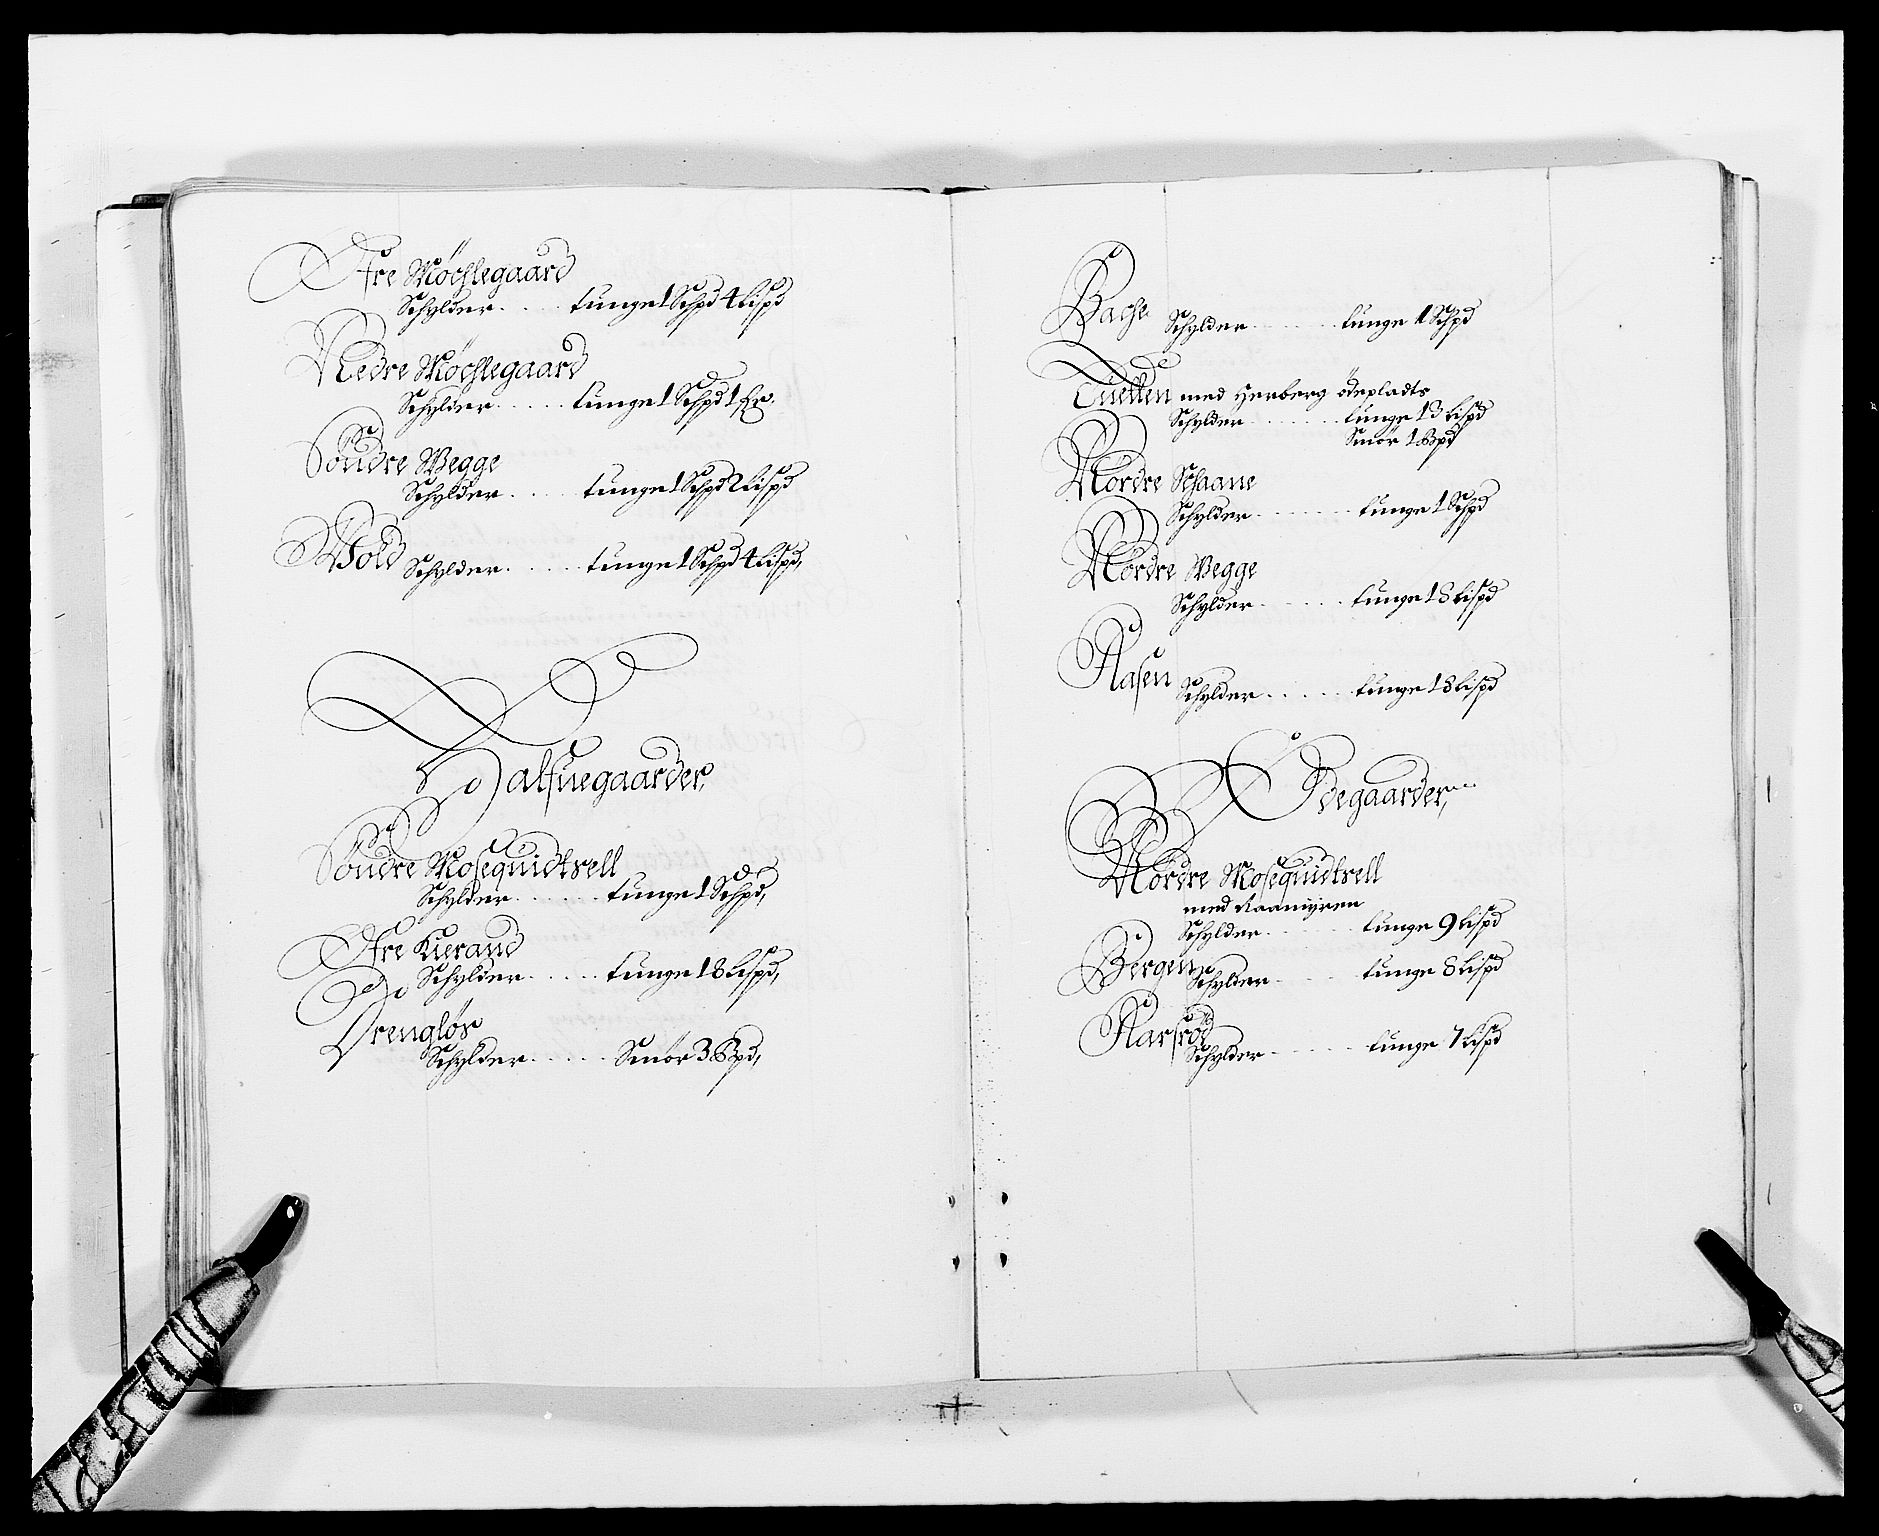 Øfre Møchlegaard
Schylder..... tunge 1 Schpd 4 Lispd
Nedre Møchlegaard
Schylder..... tunge 1 Schpd 1 fr.
Söndre Wegge
Schylder..... tunge 1 Schpd 2 Lispd
Wold Schylder..... tunge 1 Schpd 4 Lispd,
Halfuegaarder,
Söndre Mosequidtsell
Schylder...... tunge 1 Schpd,
Øfre Kierand
Schylder..... tunge 18 Lispd,
Drengløs
Schylder..... Smör 3 Bpd,
Bache Schylder...... tunge 1 Schpd
Tuetten med Herberg ödepladts
Schylder....... tunge 13 Lispd
Smör 1 Bpd
Nordre Schaane
Schylder....... tunge 1 Schpd
Nordre Wegge
Schylder...... tunge 18 Lispd
Aasen Schylder..... tunge 18 Lispd
Ödegaarder,
Nordre Mosequidtsell
med Raamyren
Schylder...... tunge 9 Lispd
Bergen Schylder..... tunge 8 Lispd
Aarsröd
Schylder...... tunge 7 Lispd